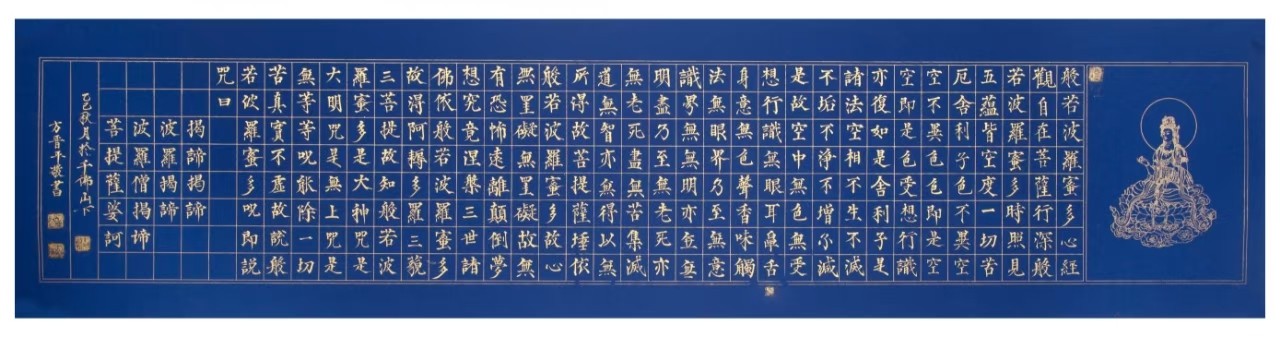 般若波羅蜜多心経
觀自在菩薩行深般
若波羅蜜多時照見
五蘊皆空度一切苦
厄舍利子色不異空
空不異色色即是空
空即是色受想行識
亦復如是舍利子是
諸法空相不生不滅
不垢不淨不增不減
是故空中無色無受
想行識無眼耳鼻舌
身意無色聲香味觸
法無眼界乃至無意
識界無無明亦無無
明盡乃至無老死亦
無老死盡無苦集滅
道無智亦無得以無
所得故菩提薩埵依
般若波羅蜜多故心
無罣礙無罣礙故無
有恐怖遠離顛倒夢
想究竟涅槃三世諸
佛依般若波羅蜜多
故得阿耨多羅三藐
三菩提故知般若波
羅蜜多是大神咒是
大明咒是無上咒是
無等等呪能除一切
苦真實不虛故說般
若波羅蜜多呪即説
咒曰
揭諦揭諦
波羅揭諦
波羅僧揭諦
菩提薩婆訶
乙巳秋月於千佛山下
方晋平敬書